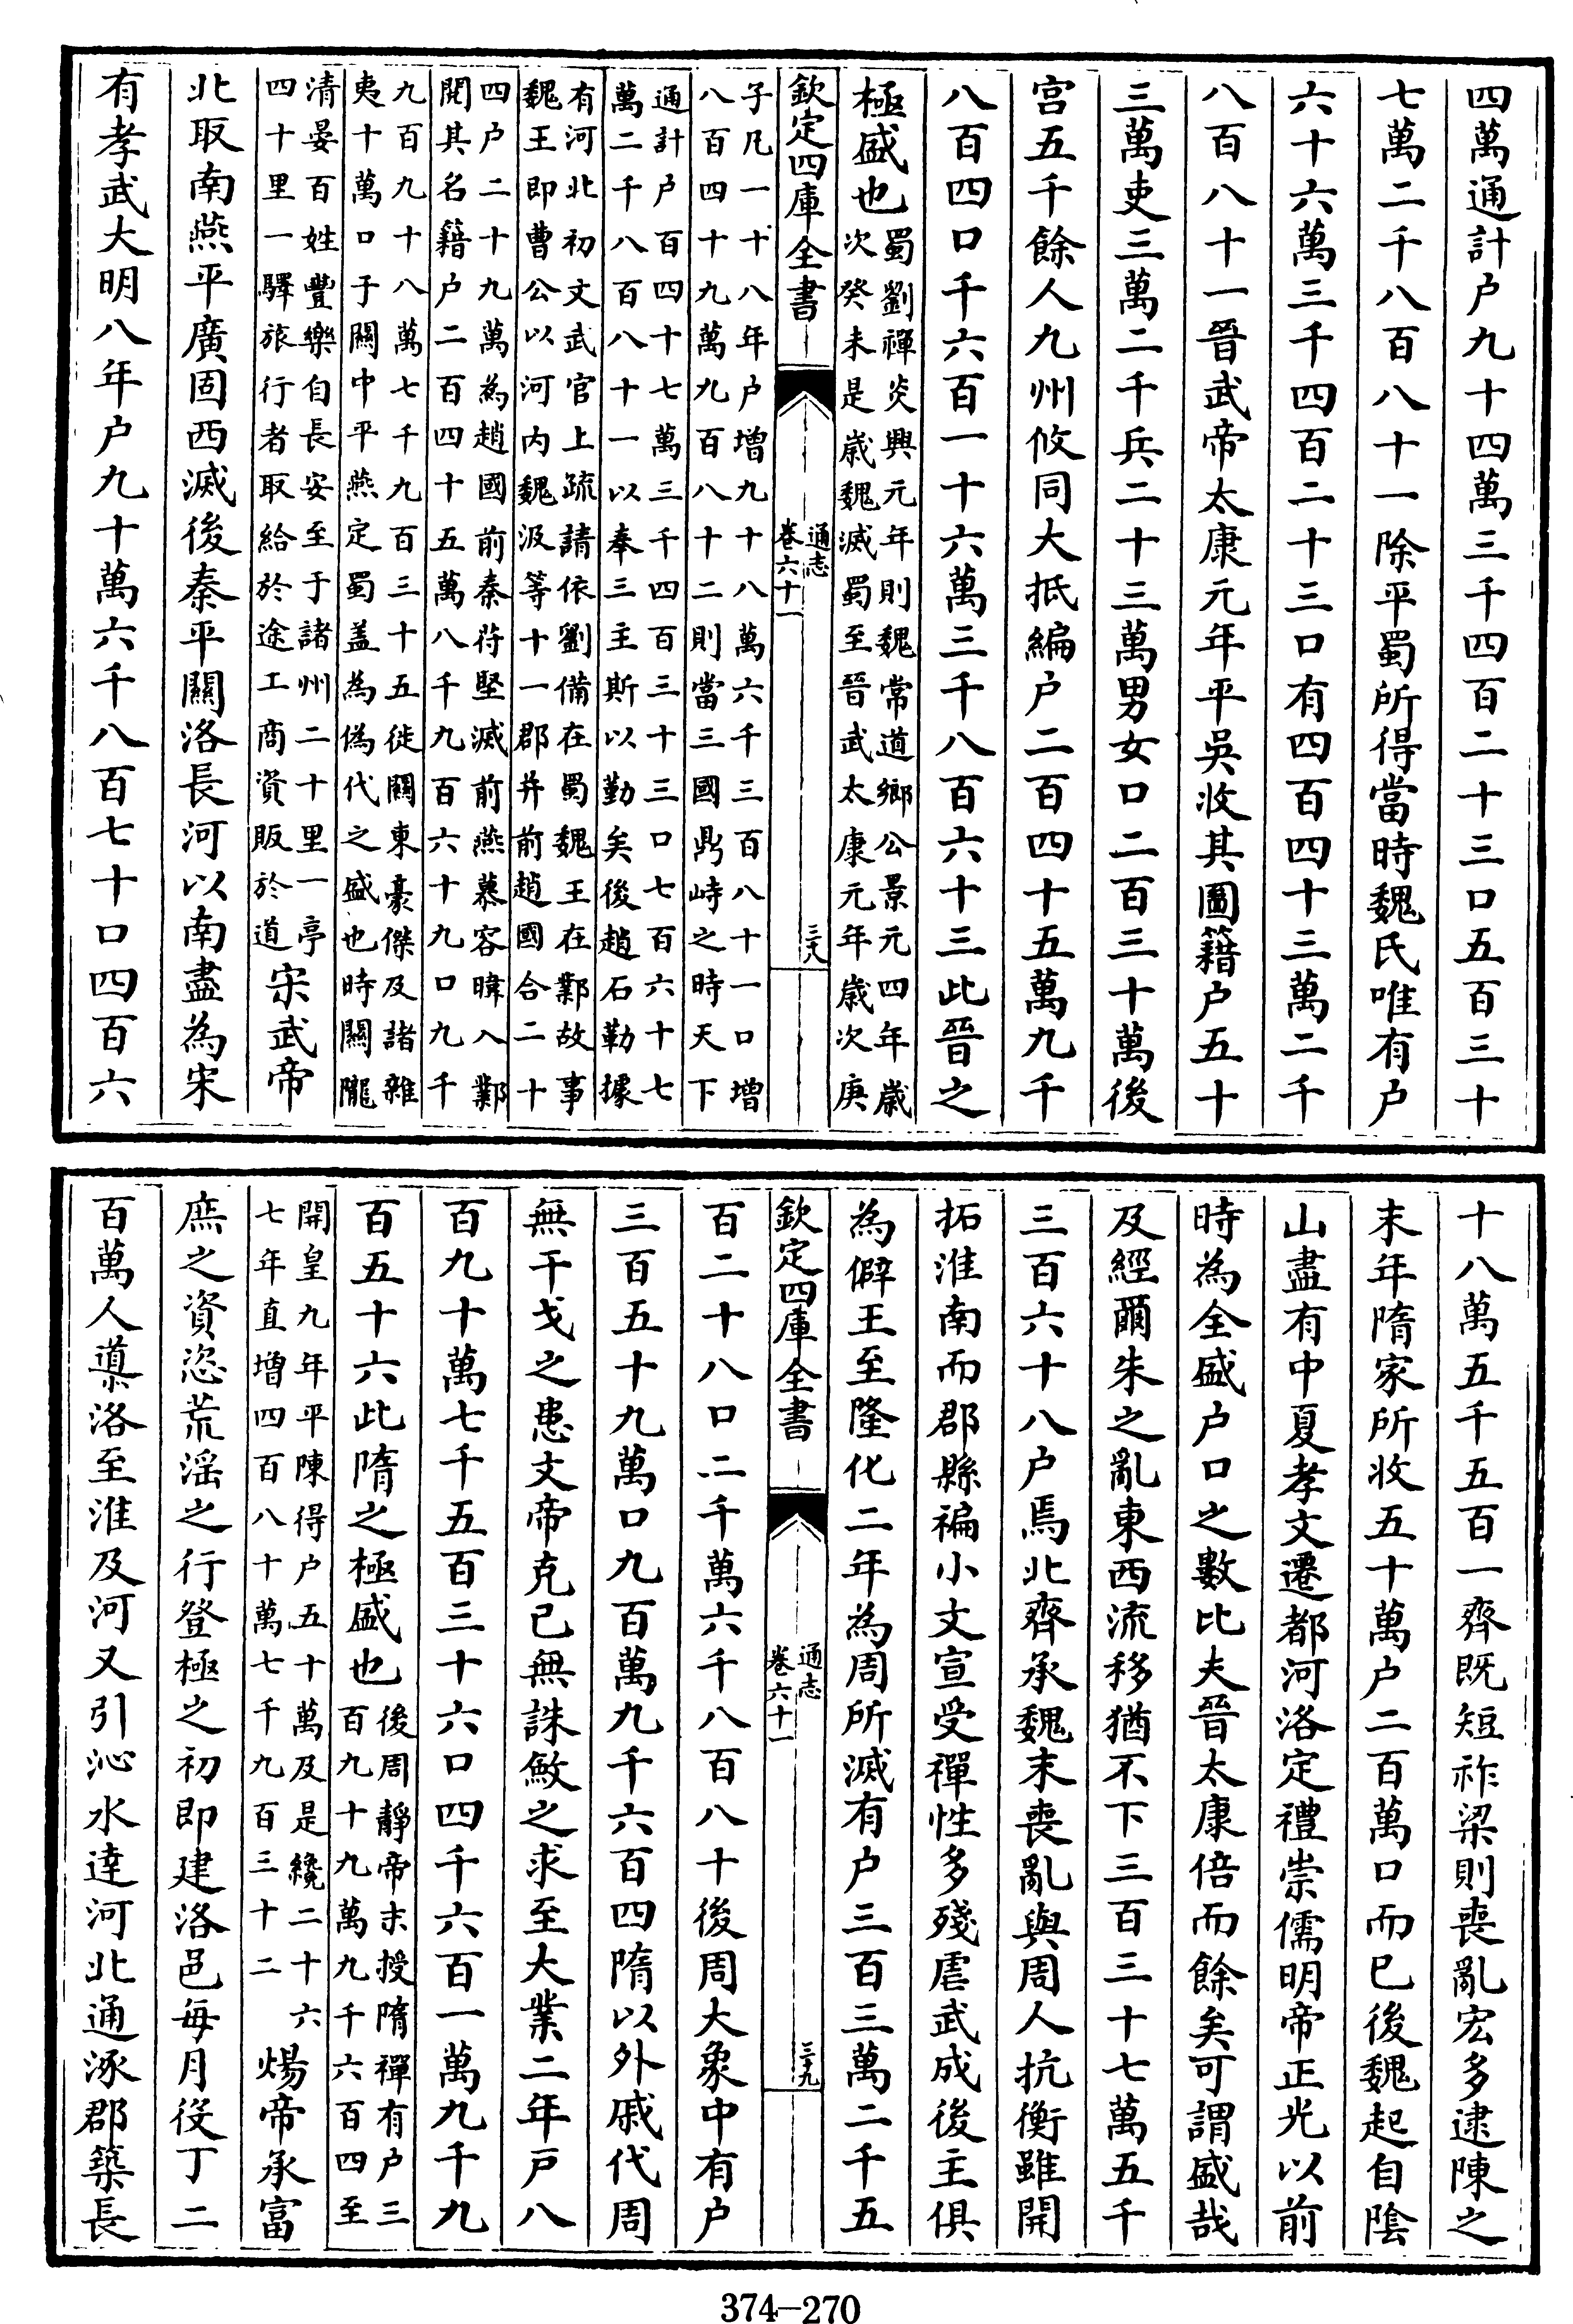 四萬通計户九十四萬三千四百二十三口五百三十
七萬二千八百八十一除平蜀所得當時魏氏唯有户
六十六萬三千四百二十三口有四百四十三萬二千
八百八十一晉武帝太康元年平吳收其圖籍户五十
三萬吏三萬二千兵二十三萬男女口二百三十萬後
宮五千餘人九州攸同大抵編户二百四十五萬九千
八百四口千六百一十六萬三千八百六十三此晉之
極盛也蜀劉禪炎興元年則魏常道鄉公景元四年歲
次癸未是歲魏滅蜀至晉武太康元年歲次庚
欽定四庫全書
通志
卷六十一
三十八
子凡一十八年户增九十八萬六千三百八十一口增
八百四十九萬九百八十二則當三國鼎峙之時天下
通計户百四十七萬三千四百三十三口七百六十七
萬二千八百八十一以奉三主斯以勤矣後趙石勒據
有河北初文武官上疏請依劉備在蜀魏王在鄴故事
魏王即曹公以河内魏汲等十一郡并前趙國合二十
四户二十九萬為趙國前秦苻堅滅前燕慕容暐入鄴
閱其名籍户二百四十五萬八千九百六十九口九千
九百九十八萬七千九百三十五徙關東豪傑及諸雜
夷十萬口于關中平燕定蜀盖為偽代之盛也時關隴
清晏百姓豐樂自長安至于諸州二十里一亭
四十里一驛旅行者取給於途工商資販於道宋武帝
北取南燕平廣固西滅後秦平關洛長河以南盡為宋
有孝武大明八年户九十萬六千八百七十口四百六
十八萬五千五百一齊既短祚梁則喪亂宏多逮陳之
末年隋家所收五十萬户二百萬口而已後魏起自陰
山盡有中夏孝文遷都河洛定禮崇儒明帝正光以前
時為全盛户口之數比夫晉太康倍而餘矣可謂盛哉
及經爾朱之亂東西流移猶不下三百三十七萬五千
三百六十八户焉北齊承魏末喪亂與周人抗衡雖開
拓淮南而郡縣褊小文宣受禪性多殘虐武成後主俱
為僻王至隆化二年為周所滅有户三百三萬二千五
欽定四庫全書
通志
卷六十一
三十九
百二十八口二千萬六千八百八十後周大象中有户
三百五十九萬口九百萬九千六百四隋以外戚代周
無干戈之患文帝克已無誅斂之求至大業二年戸八
百九十萬七千五百三十六口四千六百一萬九千九
百五十六此隋之極盛也後周靜帝末授隋禪有户三
百九十九萬九千六百四至
開皇九年平陳得户五十萬及是纔二十六
七年直增四百八十萬七千九百三十二煬帝承富
庶之資恣荒淫之行登極之初即建洛邑每月役丁二
百萬人導洛至淮及河又引沁水達河北通涿郡築長
374-270